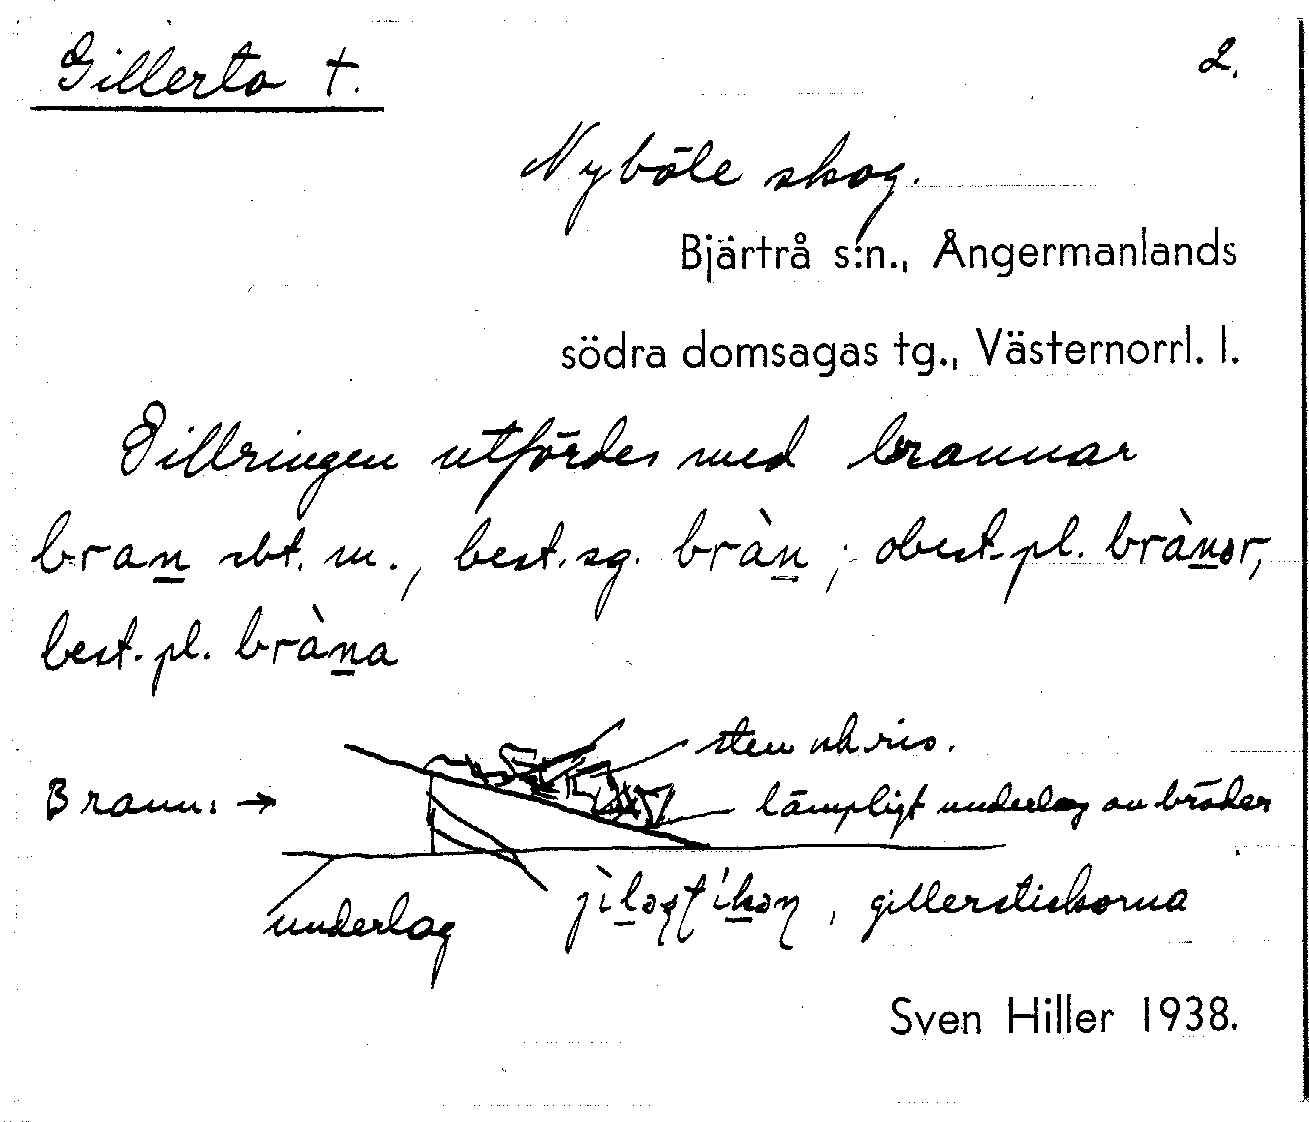 Gillerto t.
2.
Nyböle skog.
Bjärtrå s:n., Ångermanlands
södra domsagas tg., Västernorrl. l.
Gillringen utfördes med brannar
bran sbt. m., best. sg. bràn; obest. pl. brànər,
best. pl. bràna
sten och ris.
Brann: →
lämpligt underlag av bräder
underlag
, gillerstickorna
Sven Hiller 1938.